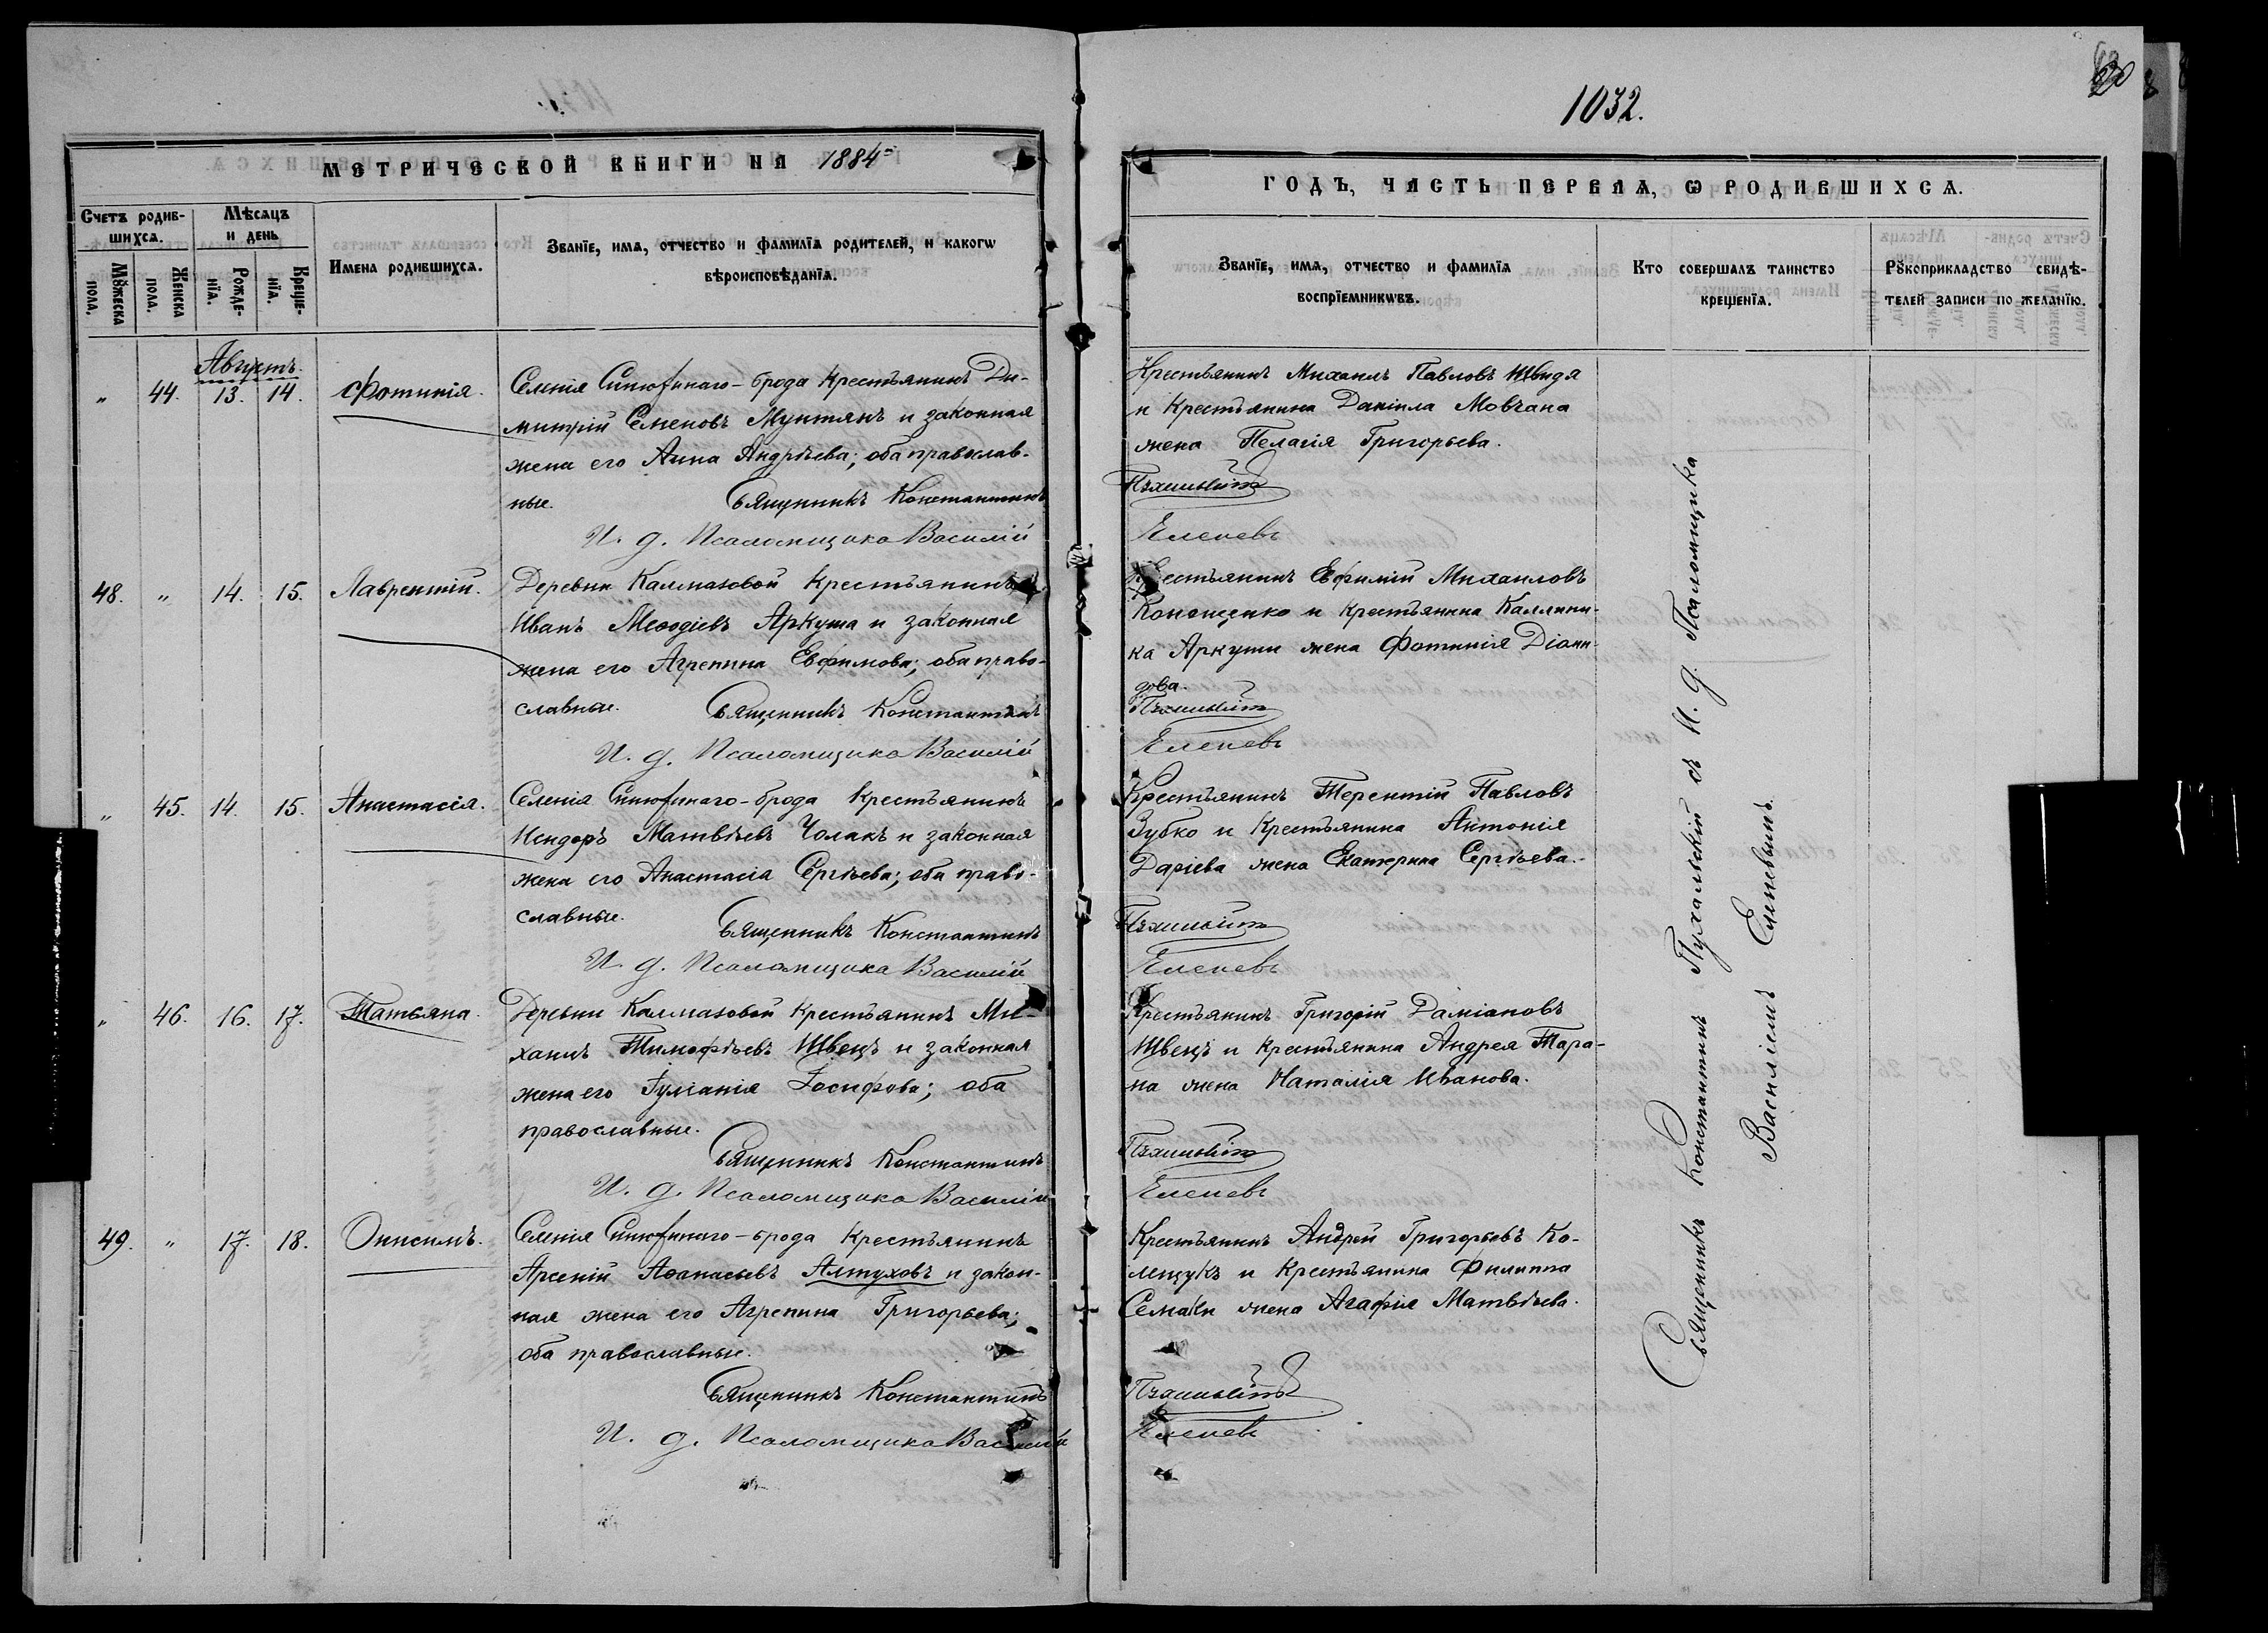 1032.
МЕТРИЧЕСКОЙ КНИГИ НА 1884й
ГОДЪ, ЧАСТЬ ПЕРВАЯ, Ѡ РОДИВШИХСѦ.
Счетъ родив-
шихсѧ.
Мѣсѧцъ
и день
Мꙋжеска
пола.
Женска
пола.
Рожде-
нїѧ.
Креще-
нїѧ.
Имена родившихсѧ.
Званїе, имѧ, отчество и фамилїѧ родителей, и какогѡ
вѣроисповѣданїѧ.
Званїе, имѧ, отчество и фамилїѧ
воспрїемникѡвъ.
Кто совершалъ таинство
крещенїѧ.
Рꙋкоприкладство свидѣ-
телей записи по желанїю.
Августъ.
" 44. 13. 14. Фотинія.
Селенія Синюхинаго-брода Крестьянинъ Ди-
митрій Семеновъ Мунтянъ и законная
жена его Анна Андрѣева; оба православ-
ные. Священникъ Константинъ
И. д. Псаломщика Василій
Крестьянинъ Михаилъ Павловъ Швидя
и Крестьянина Даніила Мовчана
жена Пелагія Григорьева.
Пухальскій
Еленевъ
48. " 14. 15. Лаврентій.
Деревни Калмазовой Крестьянинъ
Иванъ Меѳодіевъ Аркуша и законная
жена его Агрепина Евфимова; оба право-
славные. Священникъ Константинъ
И. д. Псаломщика Василій
Крестьянинъ Евфимій Михаиловъ
Кононщенко и Крестьянина Каллини-
ка Аркуши жена Фотинія Діоми-
дова.
Пухальскій
Еленевъ
" 45. 14. 15. Анастасія.
Селенія Синюхинаго-брода Крестьянинъ
Исидоръ Матвѣевъ Чолакъ и законная
жена его Анастасія Сергѣева; оба право-
славные. Священникъ Константинъ
И. д. Псаломщика Василій
Крестьянинъ Терентій Павловъ
Зубко и Крестьянина Антонія
Даріева жена Екатерина Сергѣева.
Пухальскій
Еленевъ
" 46. 16. 17. Татьяна.
Деревни Калмазовой Крестьянинъ Ми-
хаилъ Тимофѣевъ Швецъ и законная
жена его Іуліанія Іосифова; оба
православные.
Священникъ Константинъ
И. д. Псаломщика Василій
Крестьянинъ Григорій Даміановъ
Швецъ и Крестьянина Андрея Тара-
на жена Наталія Иванова.
Пухальскій
Еленевъ
49. " 17. 18. Онисимъ.
Селенія Синюхинаго-брода Крестьянинъ
Арсеній Аѳанасьевъ Алтуховъ и закон-
ная жена его Агрепина Григорьева;
оба православные.
Священникъ Константинъ
И. д. Псаломщика Василій
Крестьянинъ Андрей Григорьевъ Ко-
лещукъ и Крестьянина Филиппа
Семаки жена Агафія Матвѣева.
Пухальскій
Еленевъ
Священникъ Константинъ Пухальскій съ И. д. Псаломщика
Василіемъ Еленевымъ.